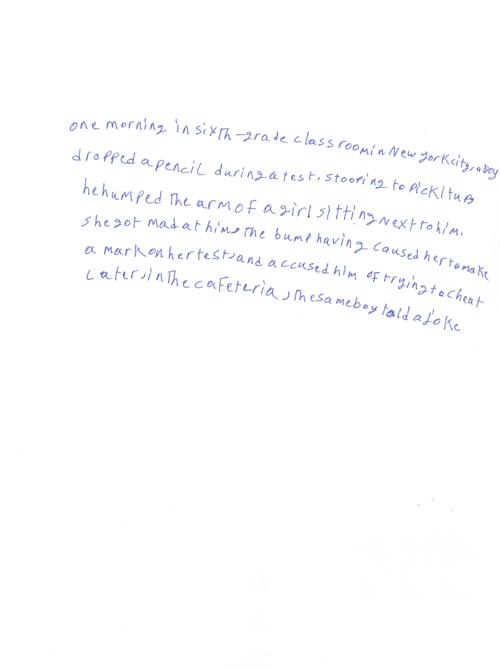 one morning in sixth-grade classroom in New York city, a boy
dropped a pencil during a test. stooping to pick it up
he humped the arm of a girl sitting next to him.
she got mad at him, the bump having caused her to make
a mark on her test, and accused him of trying to cheat
Later, in the cafeteria, the same boy told a joke